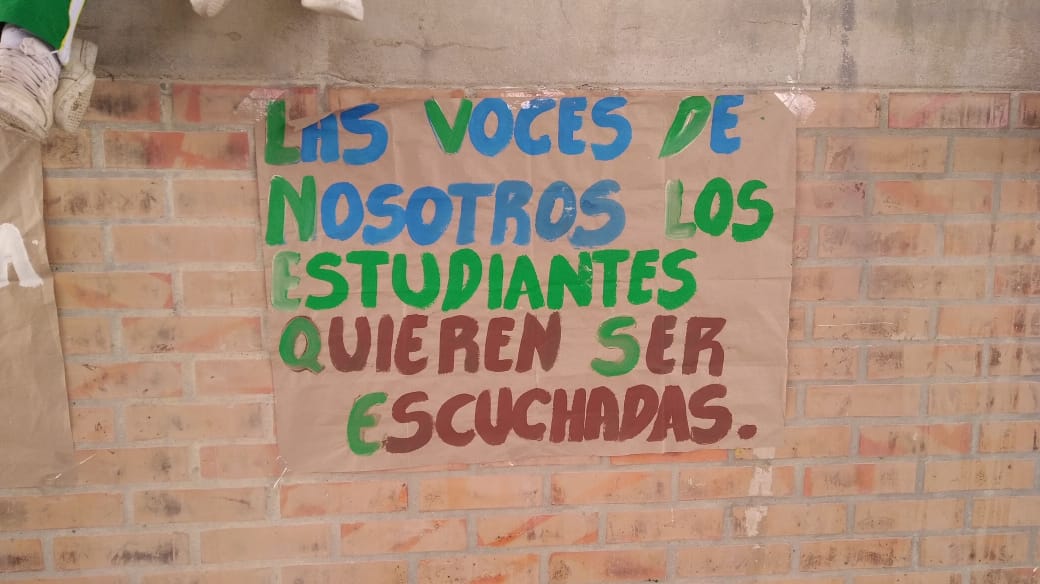 LAS VOCES DE
NOSOTROS LOS
ESTUDIANTES
QUIEREN SER
ESCUCHADAS.